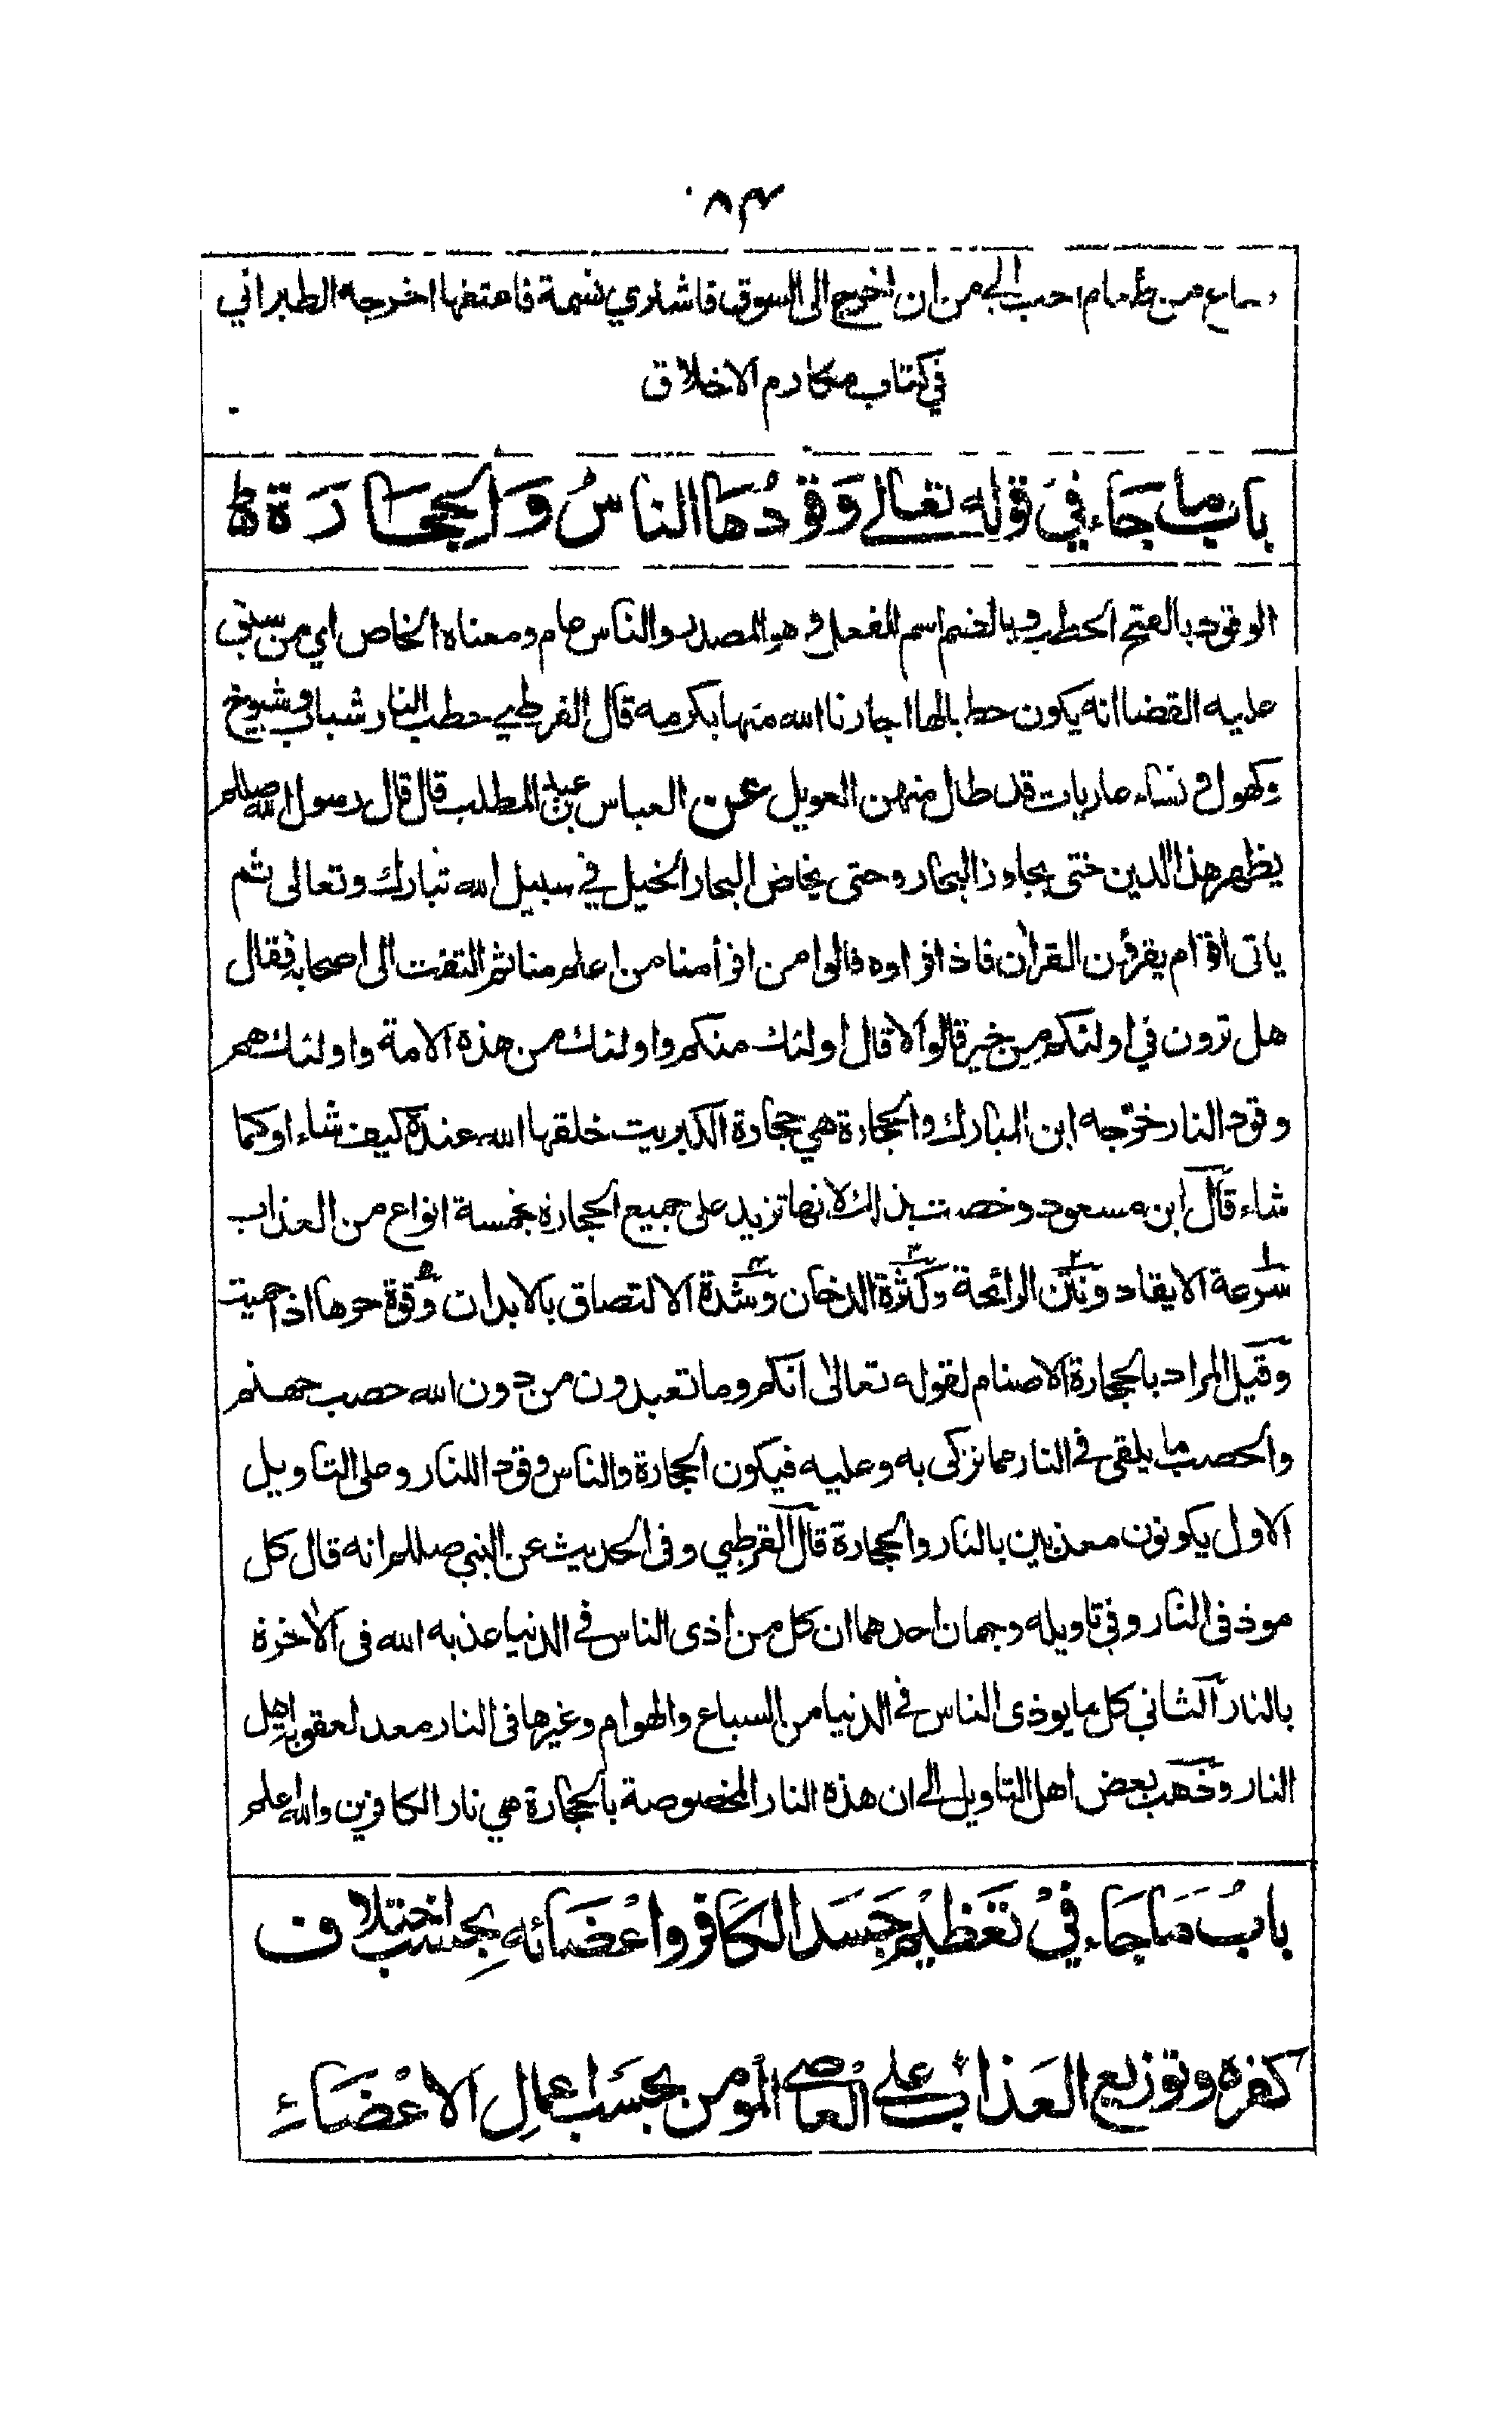 ٨٤
صاع من طعام احب الي من ان اخرج الى السوق فاشتري نسمة فاعتقها اخرجه الطبراني
في كتاب مكارم الاخلاق
باب ما جَاء في قوله تعالے وَقودُهَا الناسُ وَالحِجَارَة
الوقود بالفتح الحطب وبالضم اسم للفعل وهو المصدر والناس عام ومعناه الخاص اي من سبق
عليه القضا انه يكون حطبا لها اجارنا الله منها بكرمه قال القرطبي حطب النار شباب وشيوخ
وكهول ونساء عاريات قد طال منهن العويل عن العباس بن عبد المطلب قال قال رسول الله صللم
يظهر هذا الدين حتى يجاوز البحار وحتى يخاض البحار الخيل في سبيل الله تبارك وتعالى ثم
ياتى اقوام يقرؤن القرآن فاذا قراوه قالوا من اقرأ منا من اعلم منا ثم التفت الى اصحابه فقال
هل ترون في اولئكم من خير قالوا لا قال اولئك منكم واولئك من هذه الامة واولئك هم
وقود النار خرجه ابن المبارك والحجارة هي حجارة الكبريت خلقها الله عنده كيف شاء او كما
شاء قال ابن مسعود وخصت بذلك لانها تزيد على جميع الحجارة بخمسة انواع من العذاب
سرعة الايقاد ونتن الرائحة وكثرة الدخان وشدة الالتصاق بالابدان وقوة حرها اذا حميت
وقيل المراد بالحجارة الاصنام لقوله تعالىٰ انكم وما تعبدون من دون الله حصب جهنم
والحصب ما يلقى فى النار مما تزكى به وعليه فيكون الحجارة والناس وقودا للنار وعلى التاويل
الاول يكونون معذبين بالنار والحجارة قال القرطبي وفى الحديث عن النبي صللم انه قال كل
موذ فى النار وفي تاويله وجهان احدهما ان كل من اذى الناس في الدنيا عذبه الله فى الاخرة
بالنار الثاني كل ما يوذى الناس في الدنيا من السباع والهوام وغيرها فى النار معد لعقوبة اهل
النار وذهب بعض اهل التاويل الے ان هذه النار المخصوصة بالحجارة هي نار الكافرين والله اعلم
بابُ مَا جَاء في تَعْظيم جَسَد الكَافر واعْضَائه بِحسب اختلاف
كفره وتوزيع العَذاب على العاصے المومن بحسَب اعمالِ الاعْضَاءِ